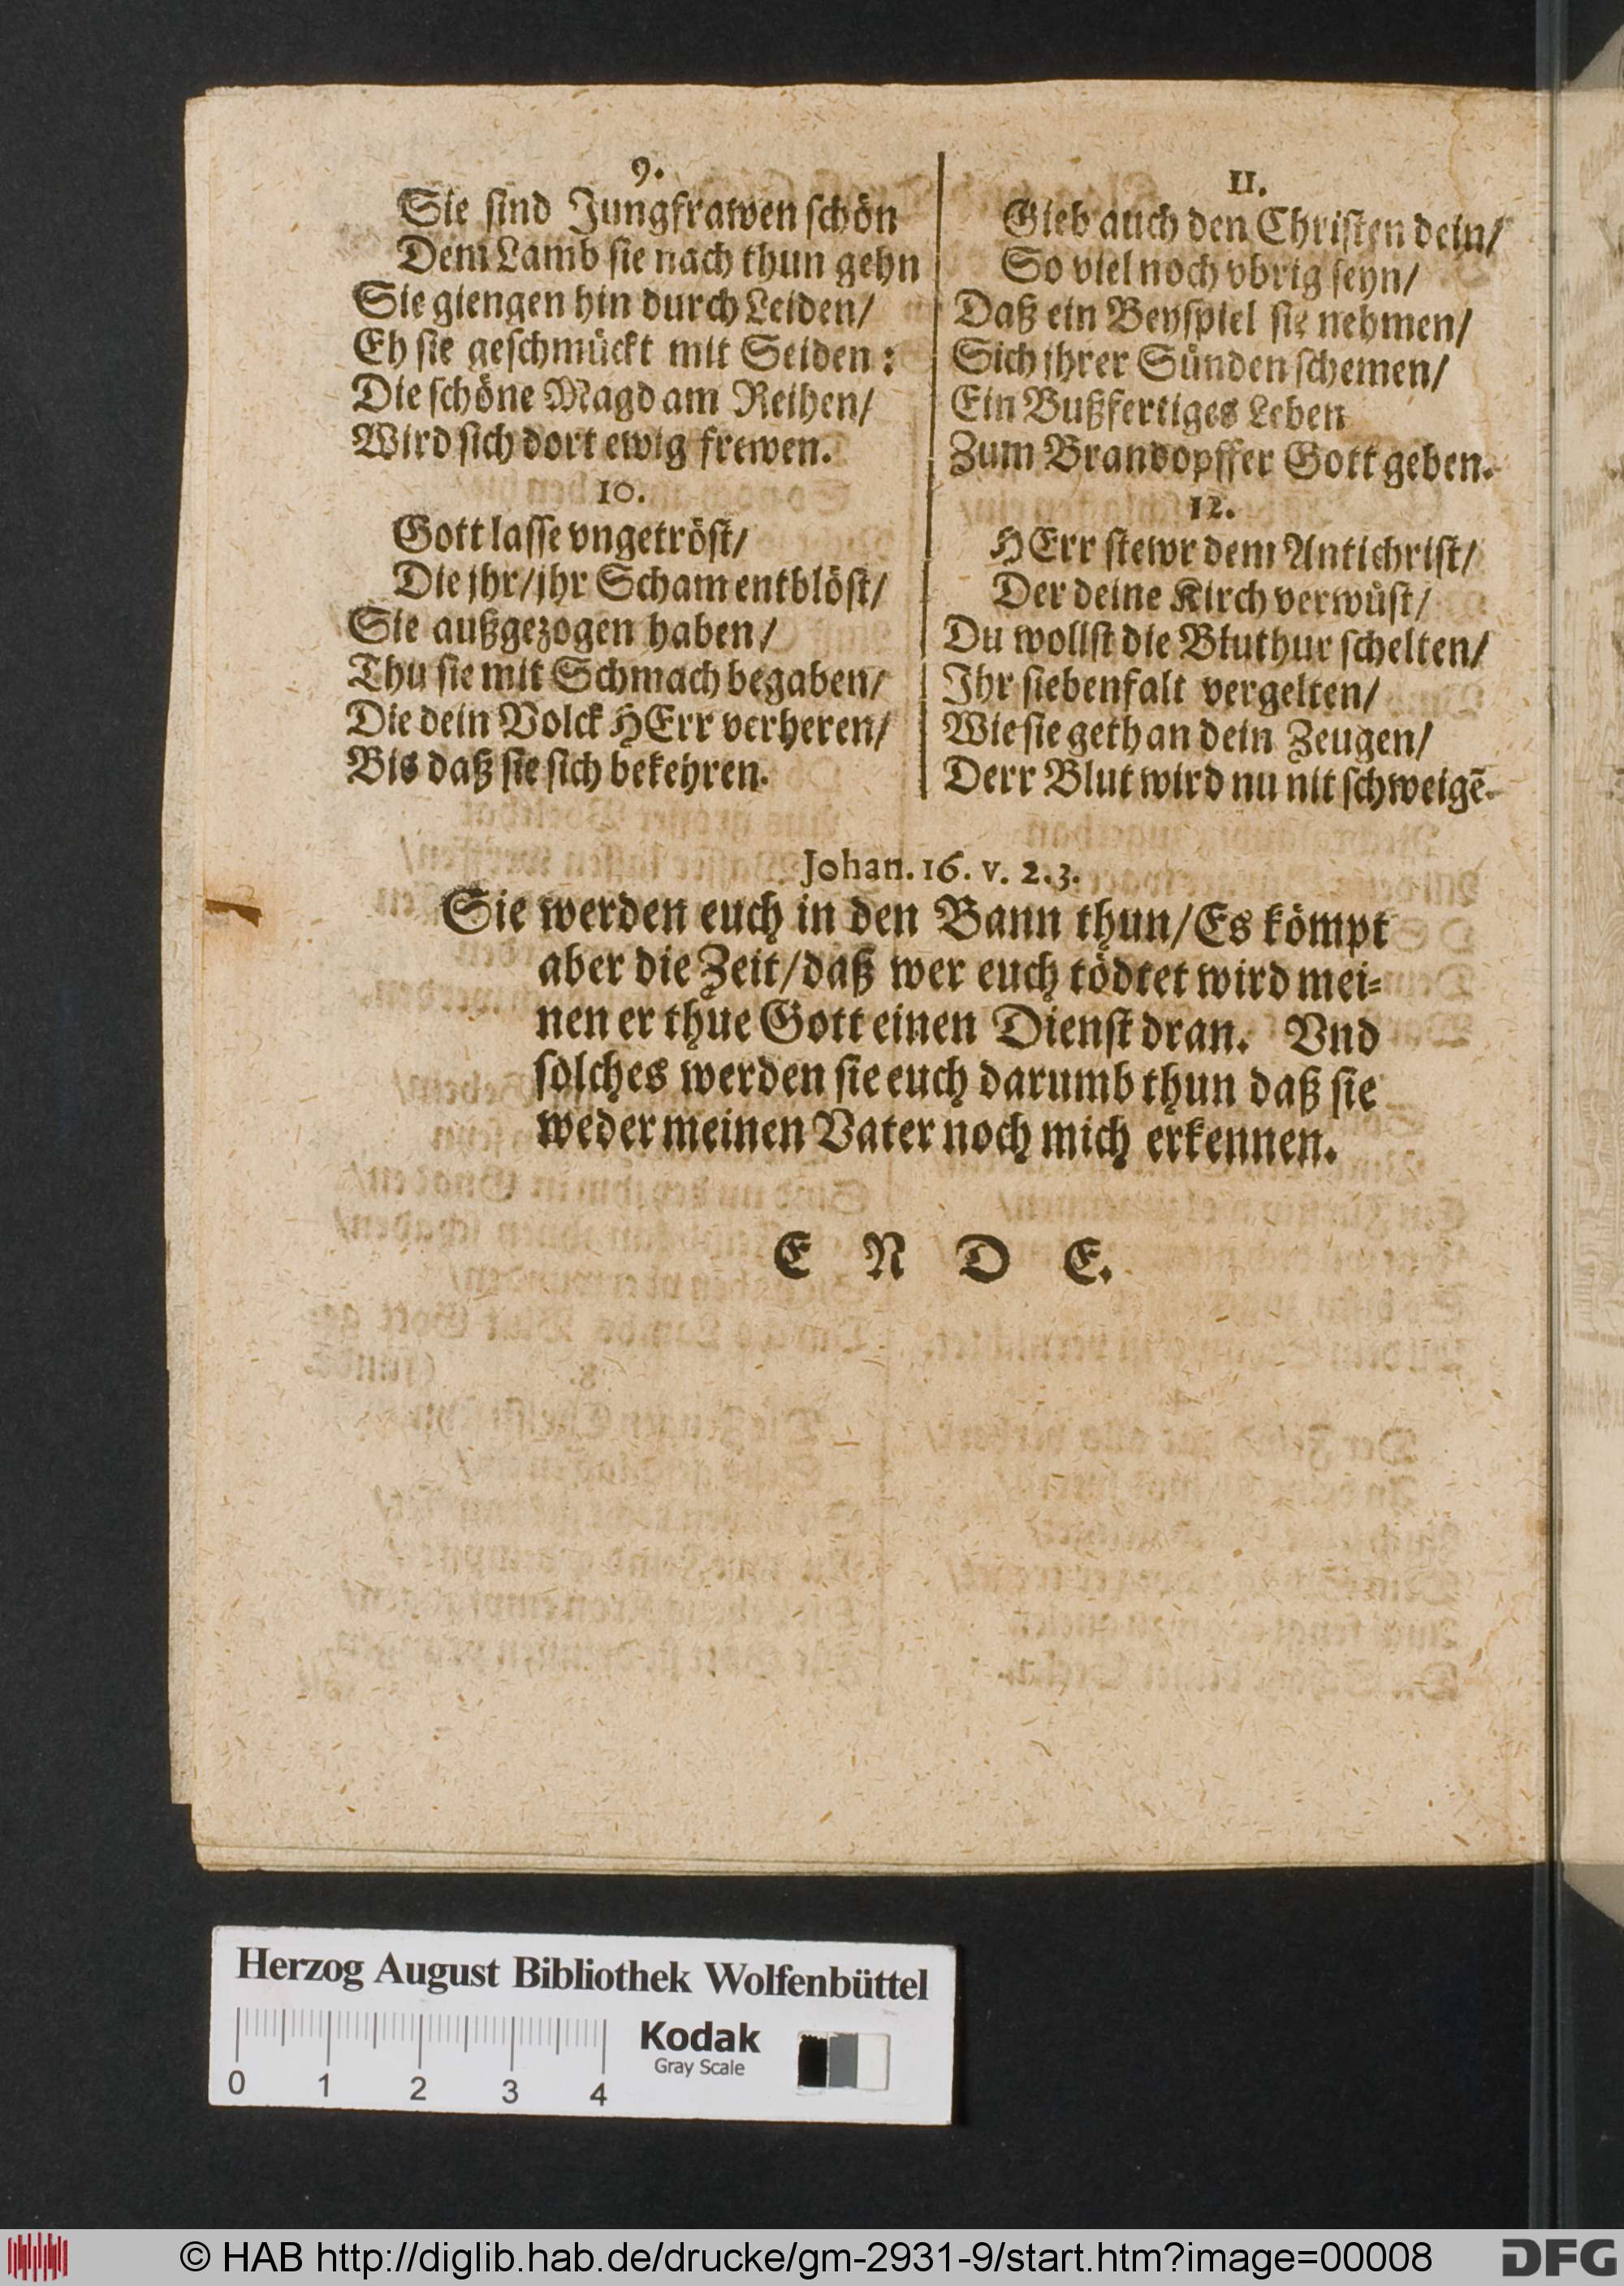 9.
Sie sind Jungfrawen schön
Dem Lamb sie nach thun gehn
Sie giengen hin durch Leiden/
Eh sie geschmückt mit Seiden:
Die schöne Magd am Reihen/
Wird sich dort ewig frewen.
10.
Gott lasse vngetröst/
Die jhr/jhr Scham entblöst/
Sie außgezogen haben/
Thu sie mit Schmach begaben/
Die dein Volck HErr verheren/
Bis daß sie sich bekehren.
11.
Gieb auch den Christen dein/
So viel noch vbrig seyn/
Daß ein Beyspiel sie nehmen/
Sich jhrer Sünden schemen/
Ein Bußfertiges Leben
Zum Brandopffer Gott geben.
12.
HErr stewr dem Antichrist/
Der deine Kirch verwüst/
Du wollst die Bluthur schelten/
Ihr siebenfalt vergelten/
Wie sie gethan dein Zeugen/
Derr Blut wird nu nit schweigẽ.
Johan. 16. v. 2. 3.
Sie werden euch in den Bann thun/Es kömpt
aber die Zeit/daß wer euch tödtet wird mei-
nen er thue Gott einen Dienst dran. Vnd
solches werden sie euch darumb thun daß sie
weder meinen Vater noch mich erkennen.
E N D E.
Herzog August Bibliothek Wolfenbüttel
Kodak
Gray Scale
0 1 2 3 4
© HAB http://diglib.hab.de/drucke/gm-2931-9/start.htm?image=00008
DFG